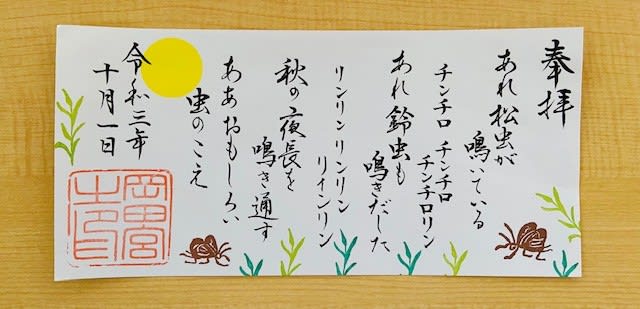 奉拝
あれ松虫が
鳴いている
チンチロ チンチロ
チンチロリン
あれ鈴虫も
鳴きだした
リンリンリンリン
リインリン
秋の夜長を
鳴き通す
ああおもしろい
虫のこえ
令和三年
十月一日
岡田宮
之印